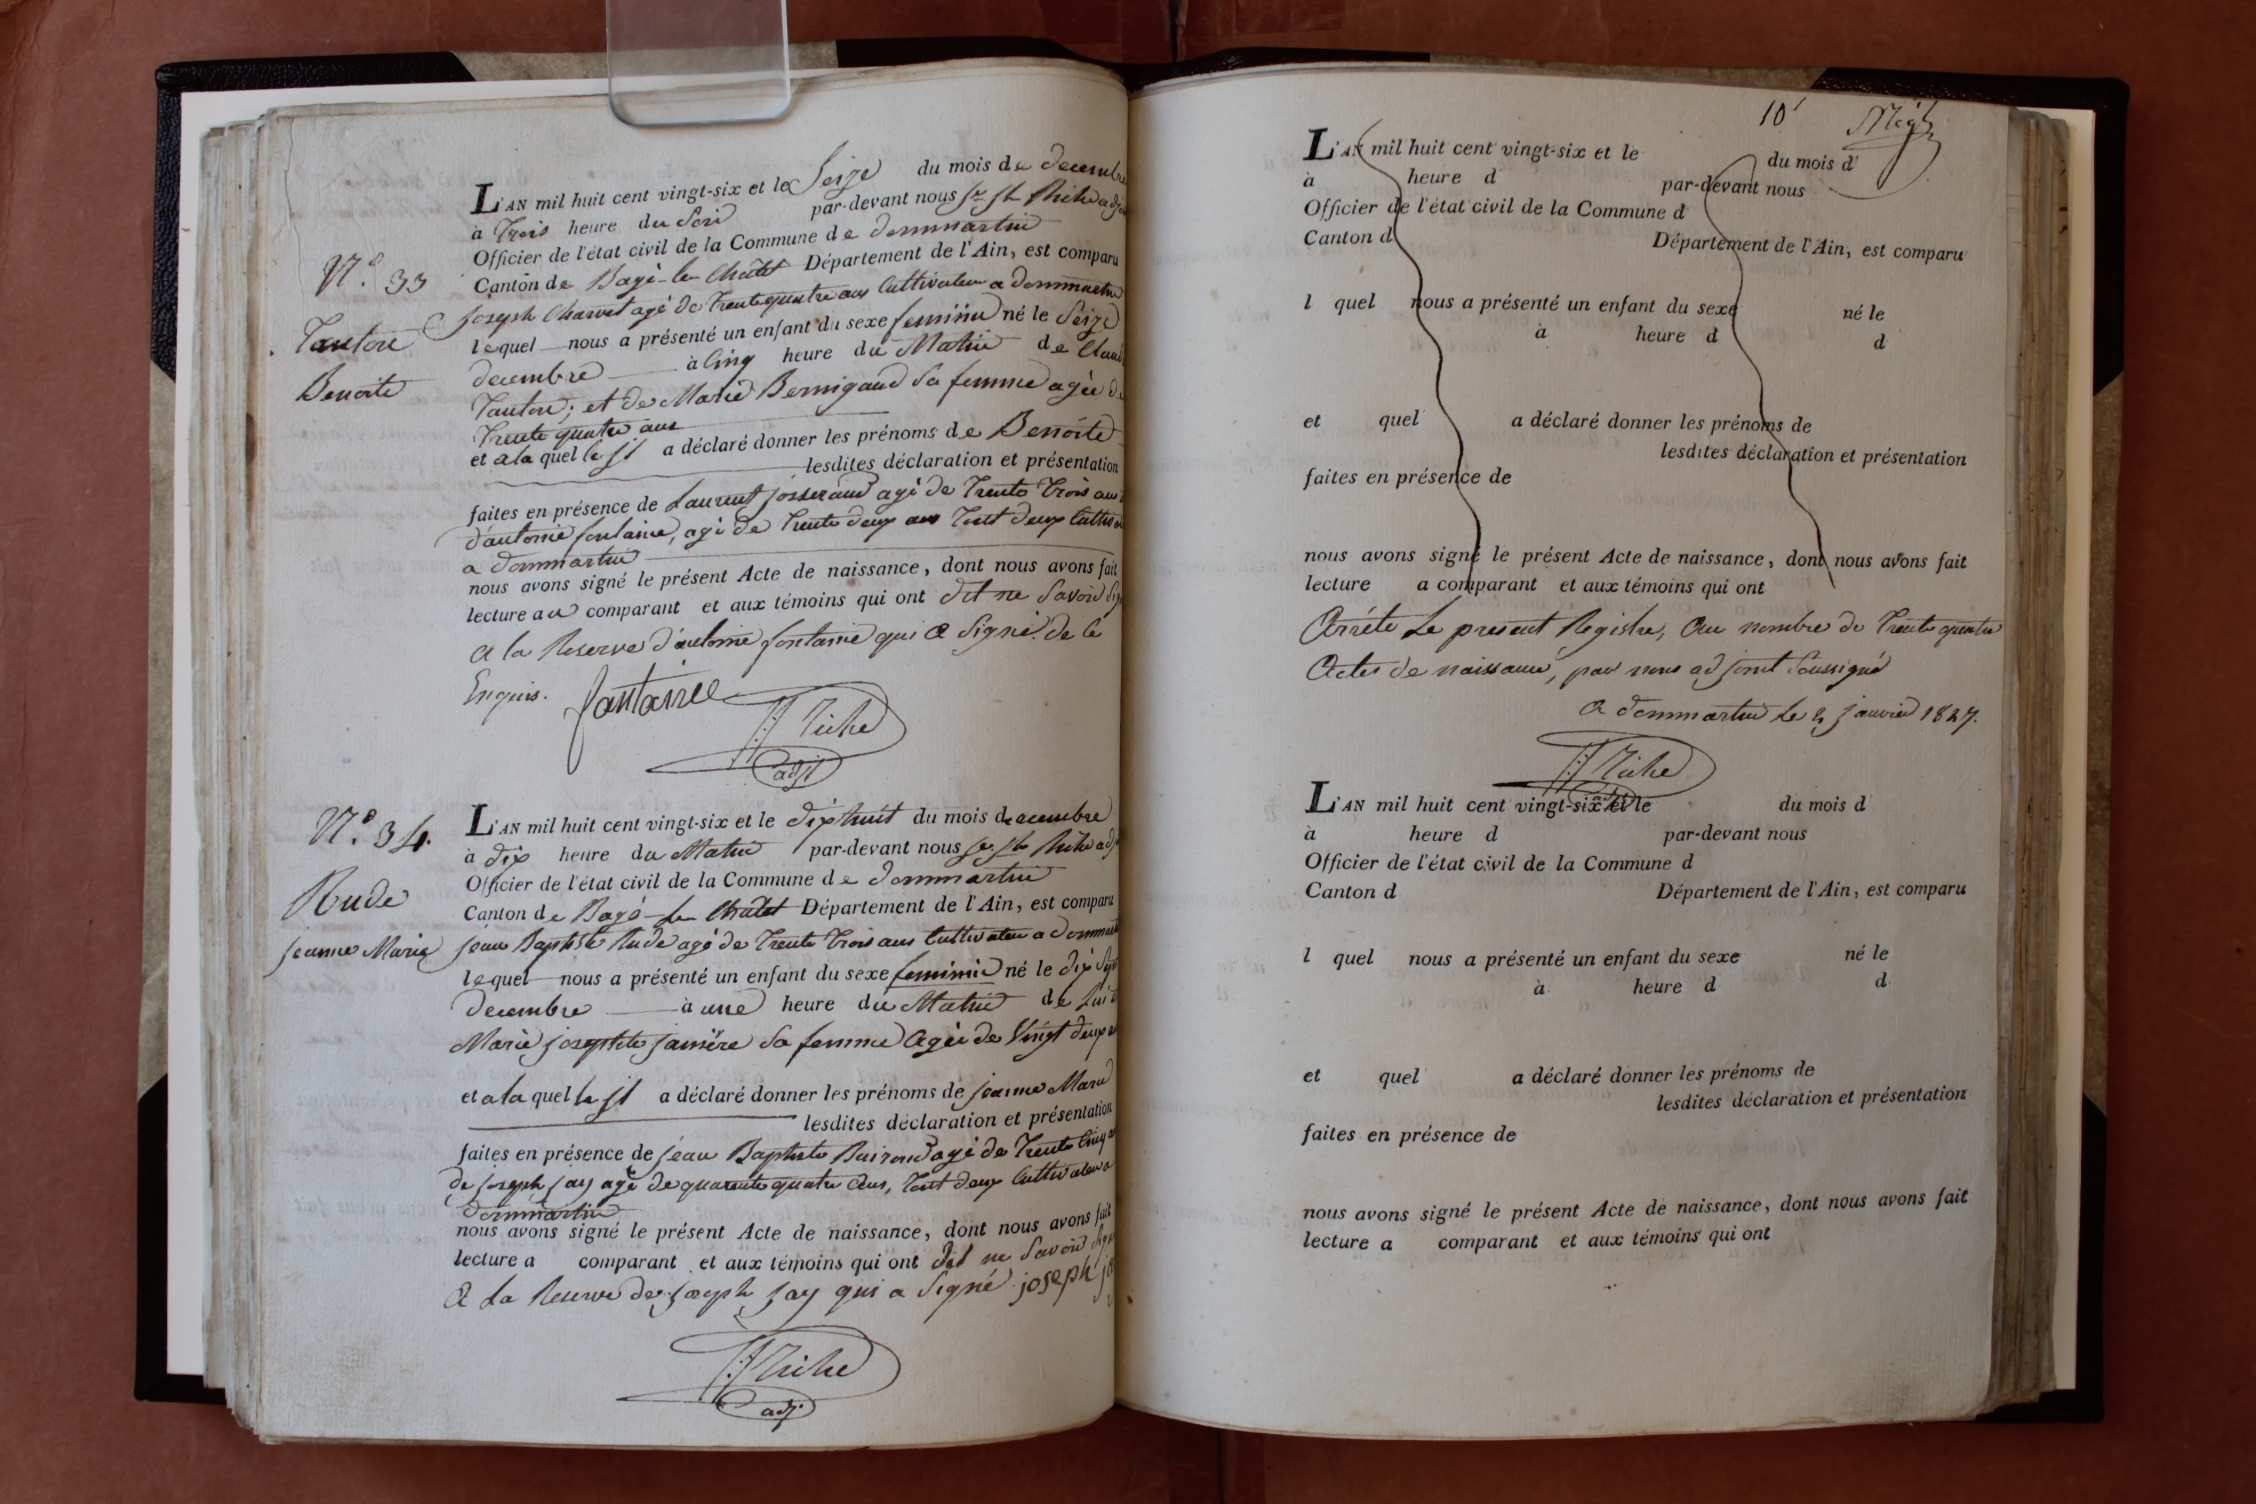 L'AN mil huit cent vingt-six et le Seize du mois de decembre
à Trois heure du Soir par-devant nous
Officier de l'état civil de la Commune de dommartin
Canton de Bagé-le Chatel Département de l'Ain, est comparu
joseph Charvet agé de Trente quatre ans Cultivateur a dommartin
lequel nous a présenté un enfant du sexe feminin né le Seize
decembre à Cinq heure du Matin de
N.° 33
Tauton
Benoite
Tauton; et de Marie Bernigaud Sa femme agée de
Trente quatre ans
et a la quel le a déclaré donner les prénoms de Benoite
lesdites déclaration et présentation
faites en présence de Laurent josserand agé de Trente Trois ans
d'antoine fontaine, agé de Trente deux ans Tout deux
a dommartin
nous avons signé le présent Acte de naissance, dont nous avons fait
lecture au comparant et aux témoins qui ont dit ne Savoir
a la Reserve d'antoine fontaine qui a Signé. de ce
Enquis. fantaine
Miche
adjt
N.° 34.
Rude
jeanne Marie
L'AN mil huit cent vingt-six et le dix huit du mois decembre
à dix heure du Matin par-devant nous
Officier de l'état civil de la Commune de dommartin
Canton de Bagé-le Chatel Département de l'Ain, est comparu
jean Baptiste Rude agé de Trente Trois ans Cultivateur a
lequel nous a présenté un enfant du sexe feminin né le dix
decembre à une heure du Matin de
Marie josephte Sa femme Agée de Vingt deux
et a la quel le a déclaré donner les prénoms de jeanne Marie
lesdites déclaration et présentation
faites en présence de jean Baptiste agé de Trente Cinq
de joseph jay agé de quarente quatre ans, Tout deux Cultivateur a
dommartin
nous avons signé le présent Acte de naissance, dont nous avons fait
lecture a comparant et aux témoins qui ont dit ne Savoir
a La Reserve de joseph jay qui a Signé joseph
Miche
adjt
10
L'AN mil huit cent vingt-six et le du mois d
à heure d par-devant nous
Officier de l'état civil de la Commune d
Canton d Département de l'Ain, est comparu
l quel nous a présenté un enfant du sexe né le
à heure d d
et quel a déclaré donner les prénoms de
lesdites déclaration et présentation
faites en présence de
nous avons signé le présent Acte de naissance, dont nous avons fait
lecture a comparant et aux témoins qui ont
Arrété Le present Registre, Au nombre de Trente quatre
Actes de naissance, par nous adjoint Soussigné
a dommartin Le janvier 1827.
Miche
L'AN mil huit cent vingt-six et le du mois d
à heure d par-devant nous
Officier de l'état civil de la Commune d
Canton d Département de l'Ain, est comparu
l quel nous a présenté un enfant du sexe né le
à heure d d
et quel a déclaré donner les prénoms de
lesdites déclaration et présentation
faites en présence de
nous avons signé le présent Acte de naissance, dont nous avons fait
lecture a comparant et aux témoins qui ont